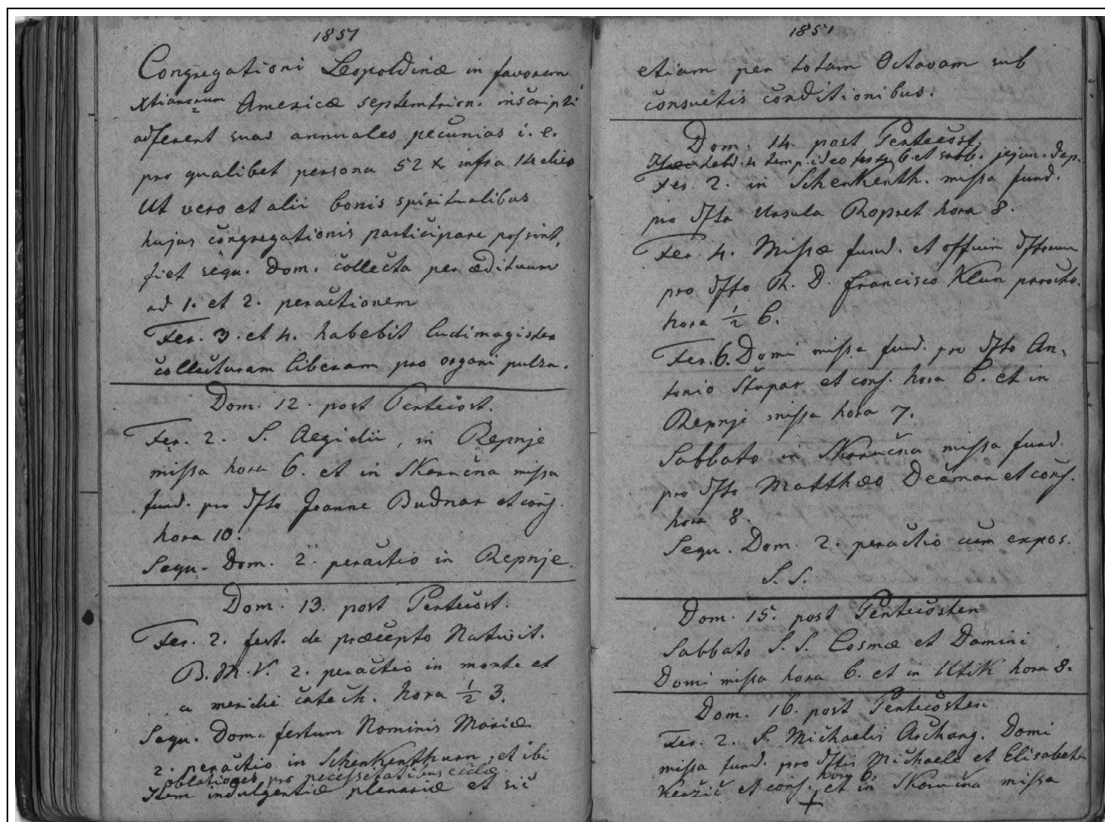 1851
Congregationi Leopoldinæ in favorem
Xtianorum Americæ septemtrion. inscripti
adferent suas annuales pecunias i. e.
pro qualibet persona 52 x infra 14 dies
Ut vero et alii bonis spiritualibus
hujus congregationis participare possint,
fiet sequ. Dom. collecta per ædituum
ad 1. et 2. peractionem
Fer. 3. et 4. habebit ludimagister
collecturam liberam pro organi pulsu.
Dom. 12. post Pentecost.
Fer. 2. S. Aegidii, in Repnje
missa hora 6. et in Skaručna missa
fund. pro dfto Joanne Budnar et conj.
hora 10.
Sequ. Dom. 2. peractio in Repnje.
Dom. 13. post Pentecost.
Fer. 2. fest. de præcepto Nativit.
B. M. V. 2. peractio in monte et
a meridie catech. hora ½ 3.
Sequ. Dom. festum Nominis Mariæ
2. peractio in Schenkenthurn, et ibi
oblationes pro necessitatibus
Item indulgentiæ plenariæ et sic
1851
etiam per totam Octavam sub
consuetis conditionibus.
Dom. 14. post Pentecost.
hebd. 4 temp. ideo fer. 4. 6 et sabb. jejun.
Fer. 2. in Schenkenth. missa fund.
pro dfta Ursula Ropret hora 8.
Fer. 4. Missæ fund. et officium dftorum
pro dfto R. D. Francisco Klun parocho.
hora ½ 6.
Fer. 6. Domi missa fund. pro dfto An-
tonio Štupar et conj. hora 6. et in
Repnje missa hora 7.
Sabbato in Skaručna missa fund.
pro dfto Matthæo Dečman et conj.
hora 8.
Sequ. Dom. 2. peractio cum expos.
S. S.
Dom. 15. post Pentecosten
Sabbato S. S. Cosmæ et Damiani
Domi missa hora 6. et in Utik hora 8.
Dom. 16. post Pentecosten
Fer. 2. S. Michaelis Archang. Domi
missa fund. pro dftis Michaele et Elisabeth
Keržič et conj. hora 6. et in Skaručna missa